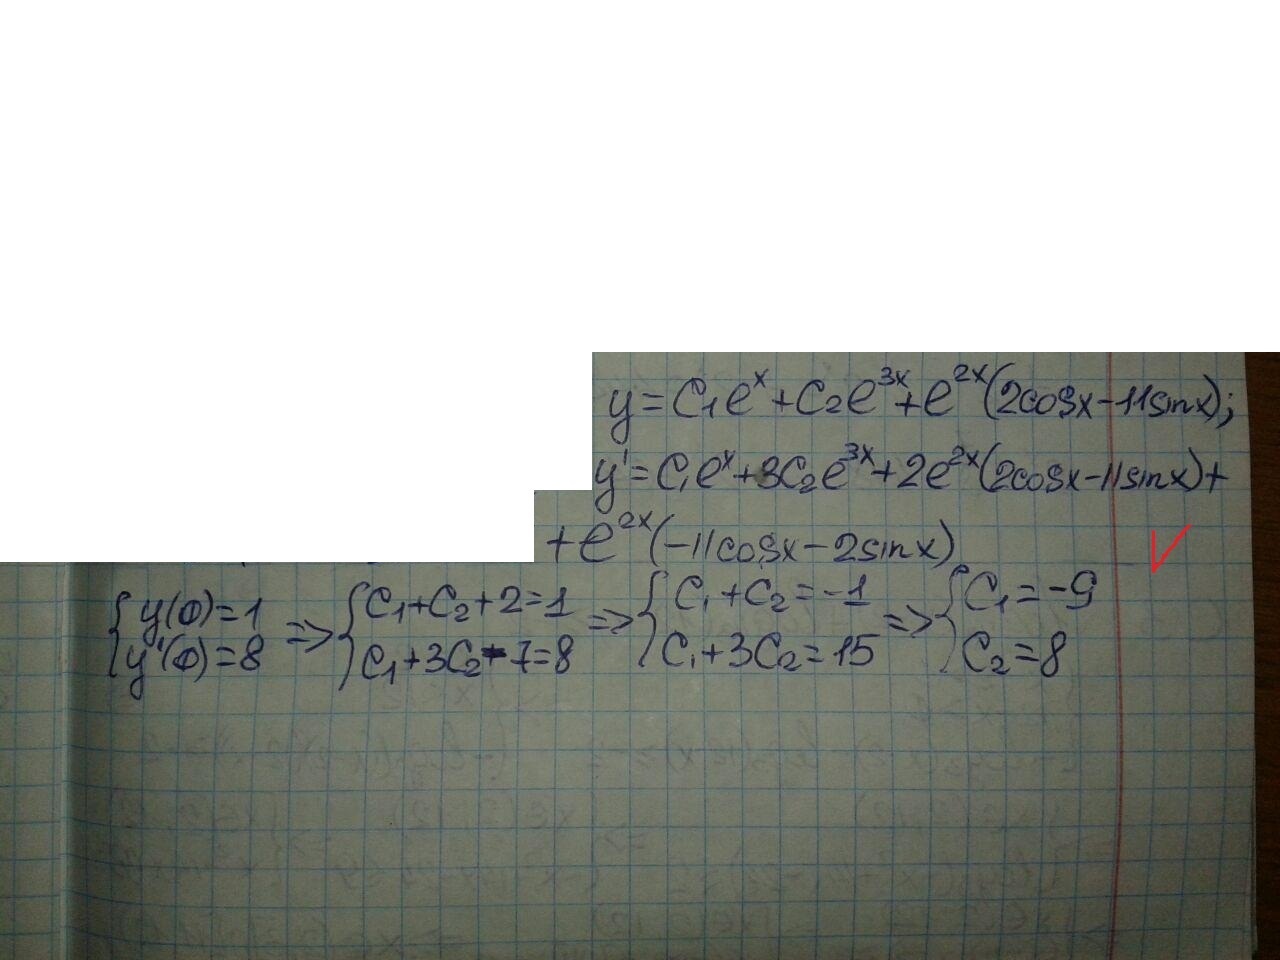 y=C₁eˣ+C₂e³ˣ+e²ˣ(2cosx-11sinx);
y'=C₁eˣ+3C₂e³ˣ+2e²ˣ(2cosx-11sinx)+
+e²ˣ(-11cosx-2sinx)
{y(0)=1 => {C₁+C₂+2=1 => {C₁+C₂=-1 => {C₁=-9
y'(0)=8 C₁+3C₂-7=8 C₁+3C₂=15 C₂=8